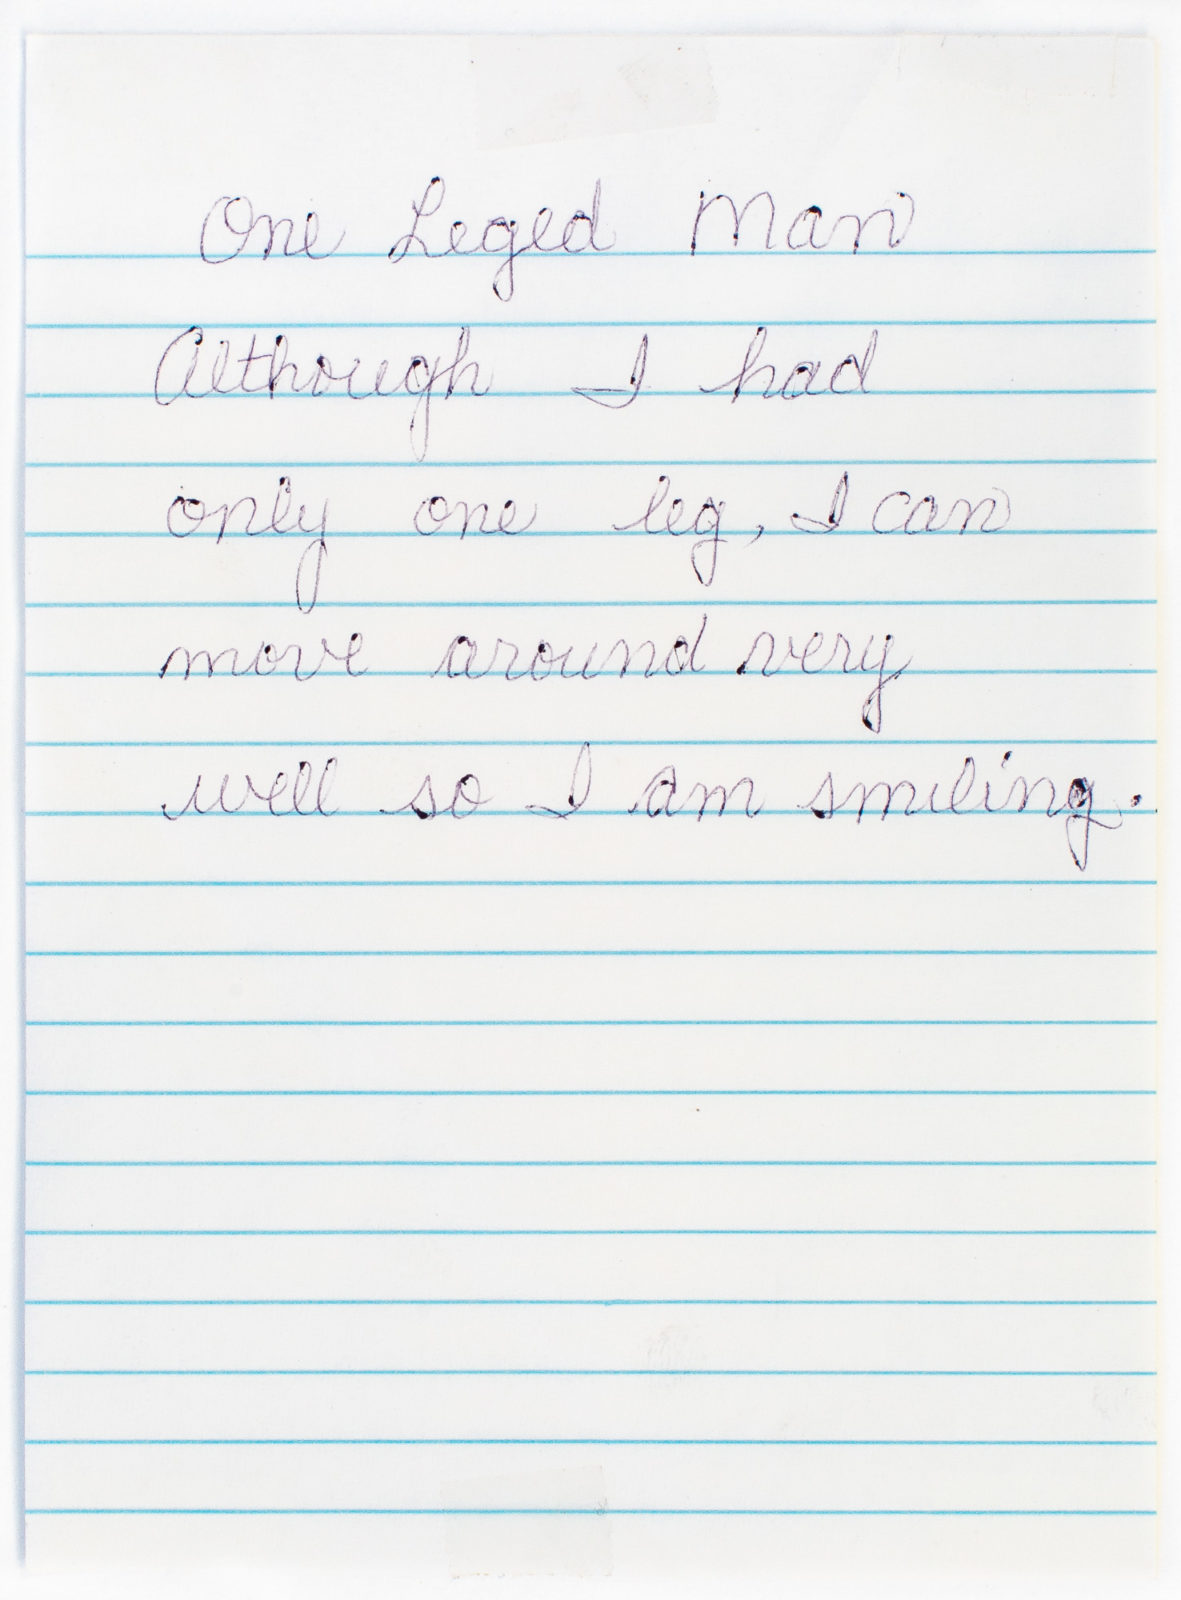 One Leged Man
Although I had
only one leg, I can
move around very
well so I am smiling.